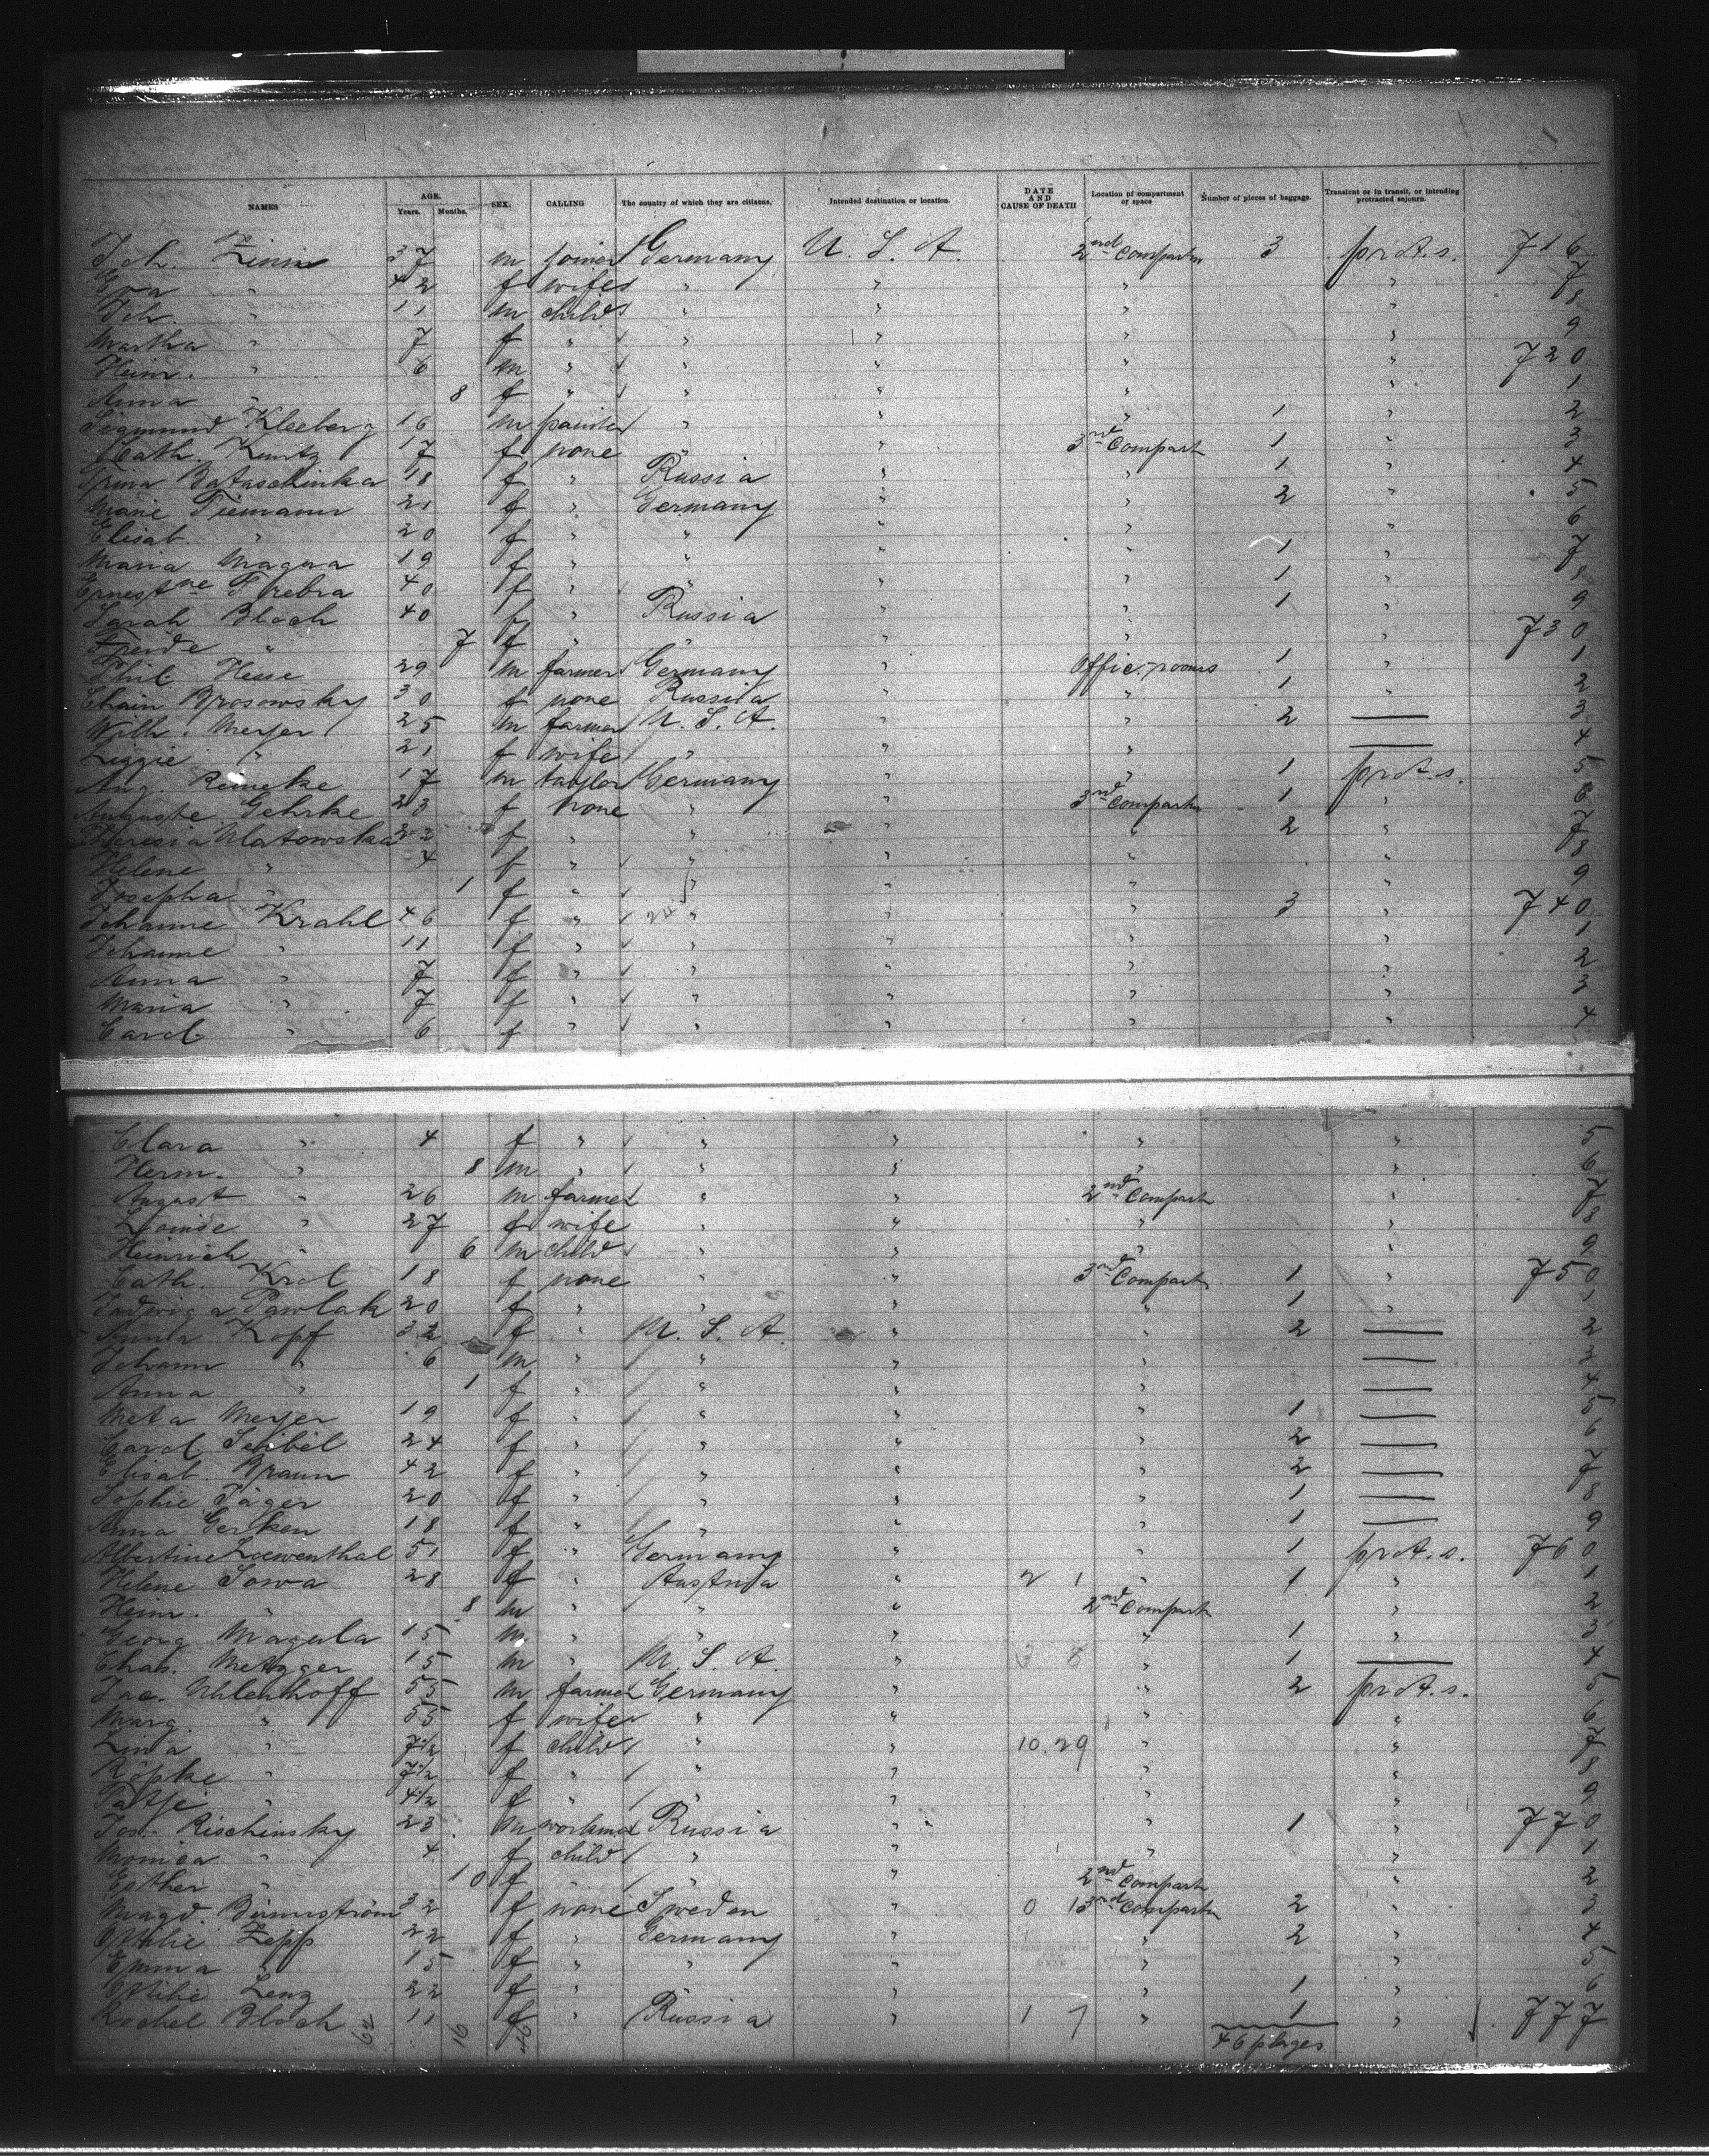 NAMES AGE. Years. Months. SEX. CALLING The country of which they are citizens. Intended destination or location. DATE AND CAUSE OF DEATH Location of compartment or space Number of pieces of baggage. Transient or in transit, or intending protracted sejourn.
Joh. Zinn 37 m joiner Germany U. S. A. 2nd Compartm 3 pr. A. s. 716
Eva " 42 f wife " " " " 7
Joh. " 11 m child " " " " 8
Martha " 7 f " " " " " 9
Heinr. " 6 m " " " " " 720
Anna " 8 f " " " " " 1
Sigmund Kleeberg 16 m painter " " " 1 " 2
Cath. Kuntz 17 f none " " 3rd Compart 1 " 3
Bataschinka 18 f " Russia " " 1 " 4
Marie Tiemann 21 f " Germany " " 2 " 5
Elisab. " 20 f " " " " " 6
Maria Magera 19 f " " " " 1 " 7
Ernestne Trebra 40 f " " " " 1 " 8
Sarah Bloch 40 f " Russia " " 1 " 9
Freide " 7 f " " " " 730
Phil. Hesse 29 m farmer Germany " Offic. rooms 1 " 1
Chain Brosowsky 30 f none Russia " " 1 " 2
Wilh. Meyer 25 m farmer U. S. A. " " 2 — 3
Lizzie " 21 f wife " " " — 4
Aug. Reineke 17 m taylor Germany " " 1 pr. A. s. 5
Auguste Gehrke 23 f none " " 3rd Compartm 1 " 6
Theresia Ulatowska 22 f " " " " 2 " 7
Helene " 4 f " " " " " 8
Josepha " 1 f " " " " " 9
Johanne Krahl 46 f " 24 " " " 3 " 740
Johanne " 11 f " " " " " 1
Anna " 7 f " " " " " 2
Maria " 7 f " " " " " 3
Carol. " 6 f " " " " " 4
Clara " 4 f " " " " " 5
Herm. " 8 m " " " " " 6
August " 26 m farmer " " 2nd Compart " 7
Louise " 27 f wife " " " " 8
Heinrich " 6 m child " " " " 9
Cath. Krol 18 f none " " 3rd Compart 1 " 750
Ludwiga Pawlak 20 f " " " " 1 " 1
Anna Kopf 32 f " U. S. A. " " 2 — 2
Johann " 6 m " " " " — 3
Anna " 1 f " " " " — 4
Meta Meyer 19 f " " " " 1 — 5
Carol. Seibel 24 f " " " " 2 — 6
Elisab. Braun 42 f " " " " 2 — 7
Sophie Jäger 20 f " " " " 1 — 8
Anna Gerken 18 f " " " " 1 — 9
Albertine Loewenthal 51 f " Germany " " 1 pr. A. s. 760
Helene Sowa 28 f " Austria " 2 1 " 1 " 1
Heinr. " 8 m " " " 2nd Compart " 2
Georg Magerla 15 m " " " " 1 " 3
Chas. Metzger 15 m " U. S. A. " 3 8 " 1 — 4
Jac. Uhlenhoff 55 m farmer Germany " " 2 pr. A. s. 5
Marg. " 55 f wife " " " " 6
Lina " 7 1/2 f child " " 10.29 " " 7
Röpke " 7 1/2 f " " " " " 8
Patje " 4 1/2 f " " " " " 9
Jos. Rischinsky 23 m workman Russia " " 1 " 770
Monica " 4 f child " " " " 1
Esther " 10 f " " " 2nd Compart " 2
Magd. 32 f none Sweden " 0 1 3rd Compartm 2 " 3
Ottilie Zepp 22 f " Germany " " 2 " 4
Emma " 15 f " " " " " 5
Ottilie Lenz 22 f " " " " 1 " 6
Rachel Bloch 11 f " Russia " 1 7 " 1 " 777
62 16 46 46 plages